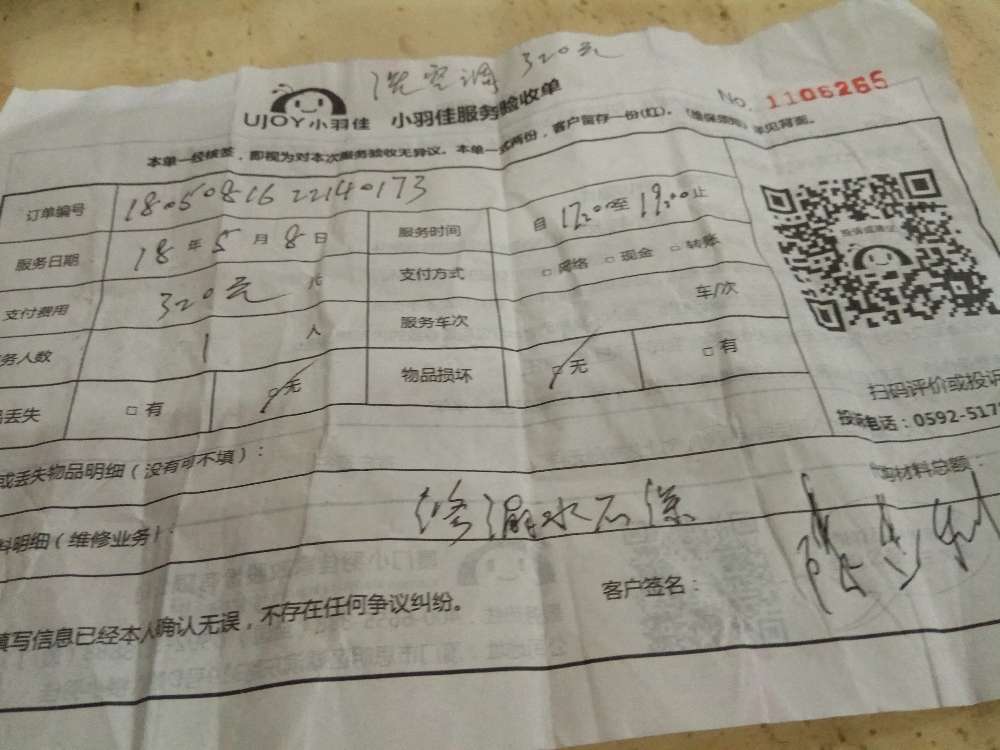 洗空调 320元
UJOY小羽佳 小羽佳服务验收单
No. 1106265
本单一经核签，即视为对本次服务验收无异议。本单一式两份，客户留存一份(红)。(维保须知)详见背面。
订单编号 1805081622140173 服务时间 自 17:00 至 19:00 止
服务日期 18 年 5 月 8 日 支付方式 □ 网络 □ 现金 □ 转账
支付费用 320元 元 服务车次 车/次
务人数 1 人 物品损坏 □ 无 □ 有
丢失 □ 有 □ 无
扫码评价或投诉
投诉电话：0592-517
或丢失物品明细（没有可不填）：
料明细（维修业务）： 修漏水 材料总额：
填写信息已经本人确认无误，不存在任何争议纠纷。 客户签名：